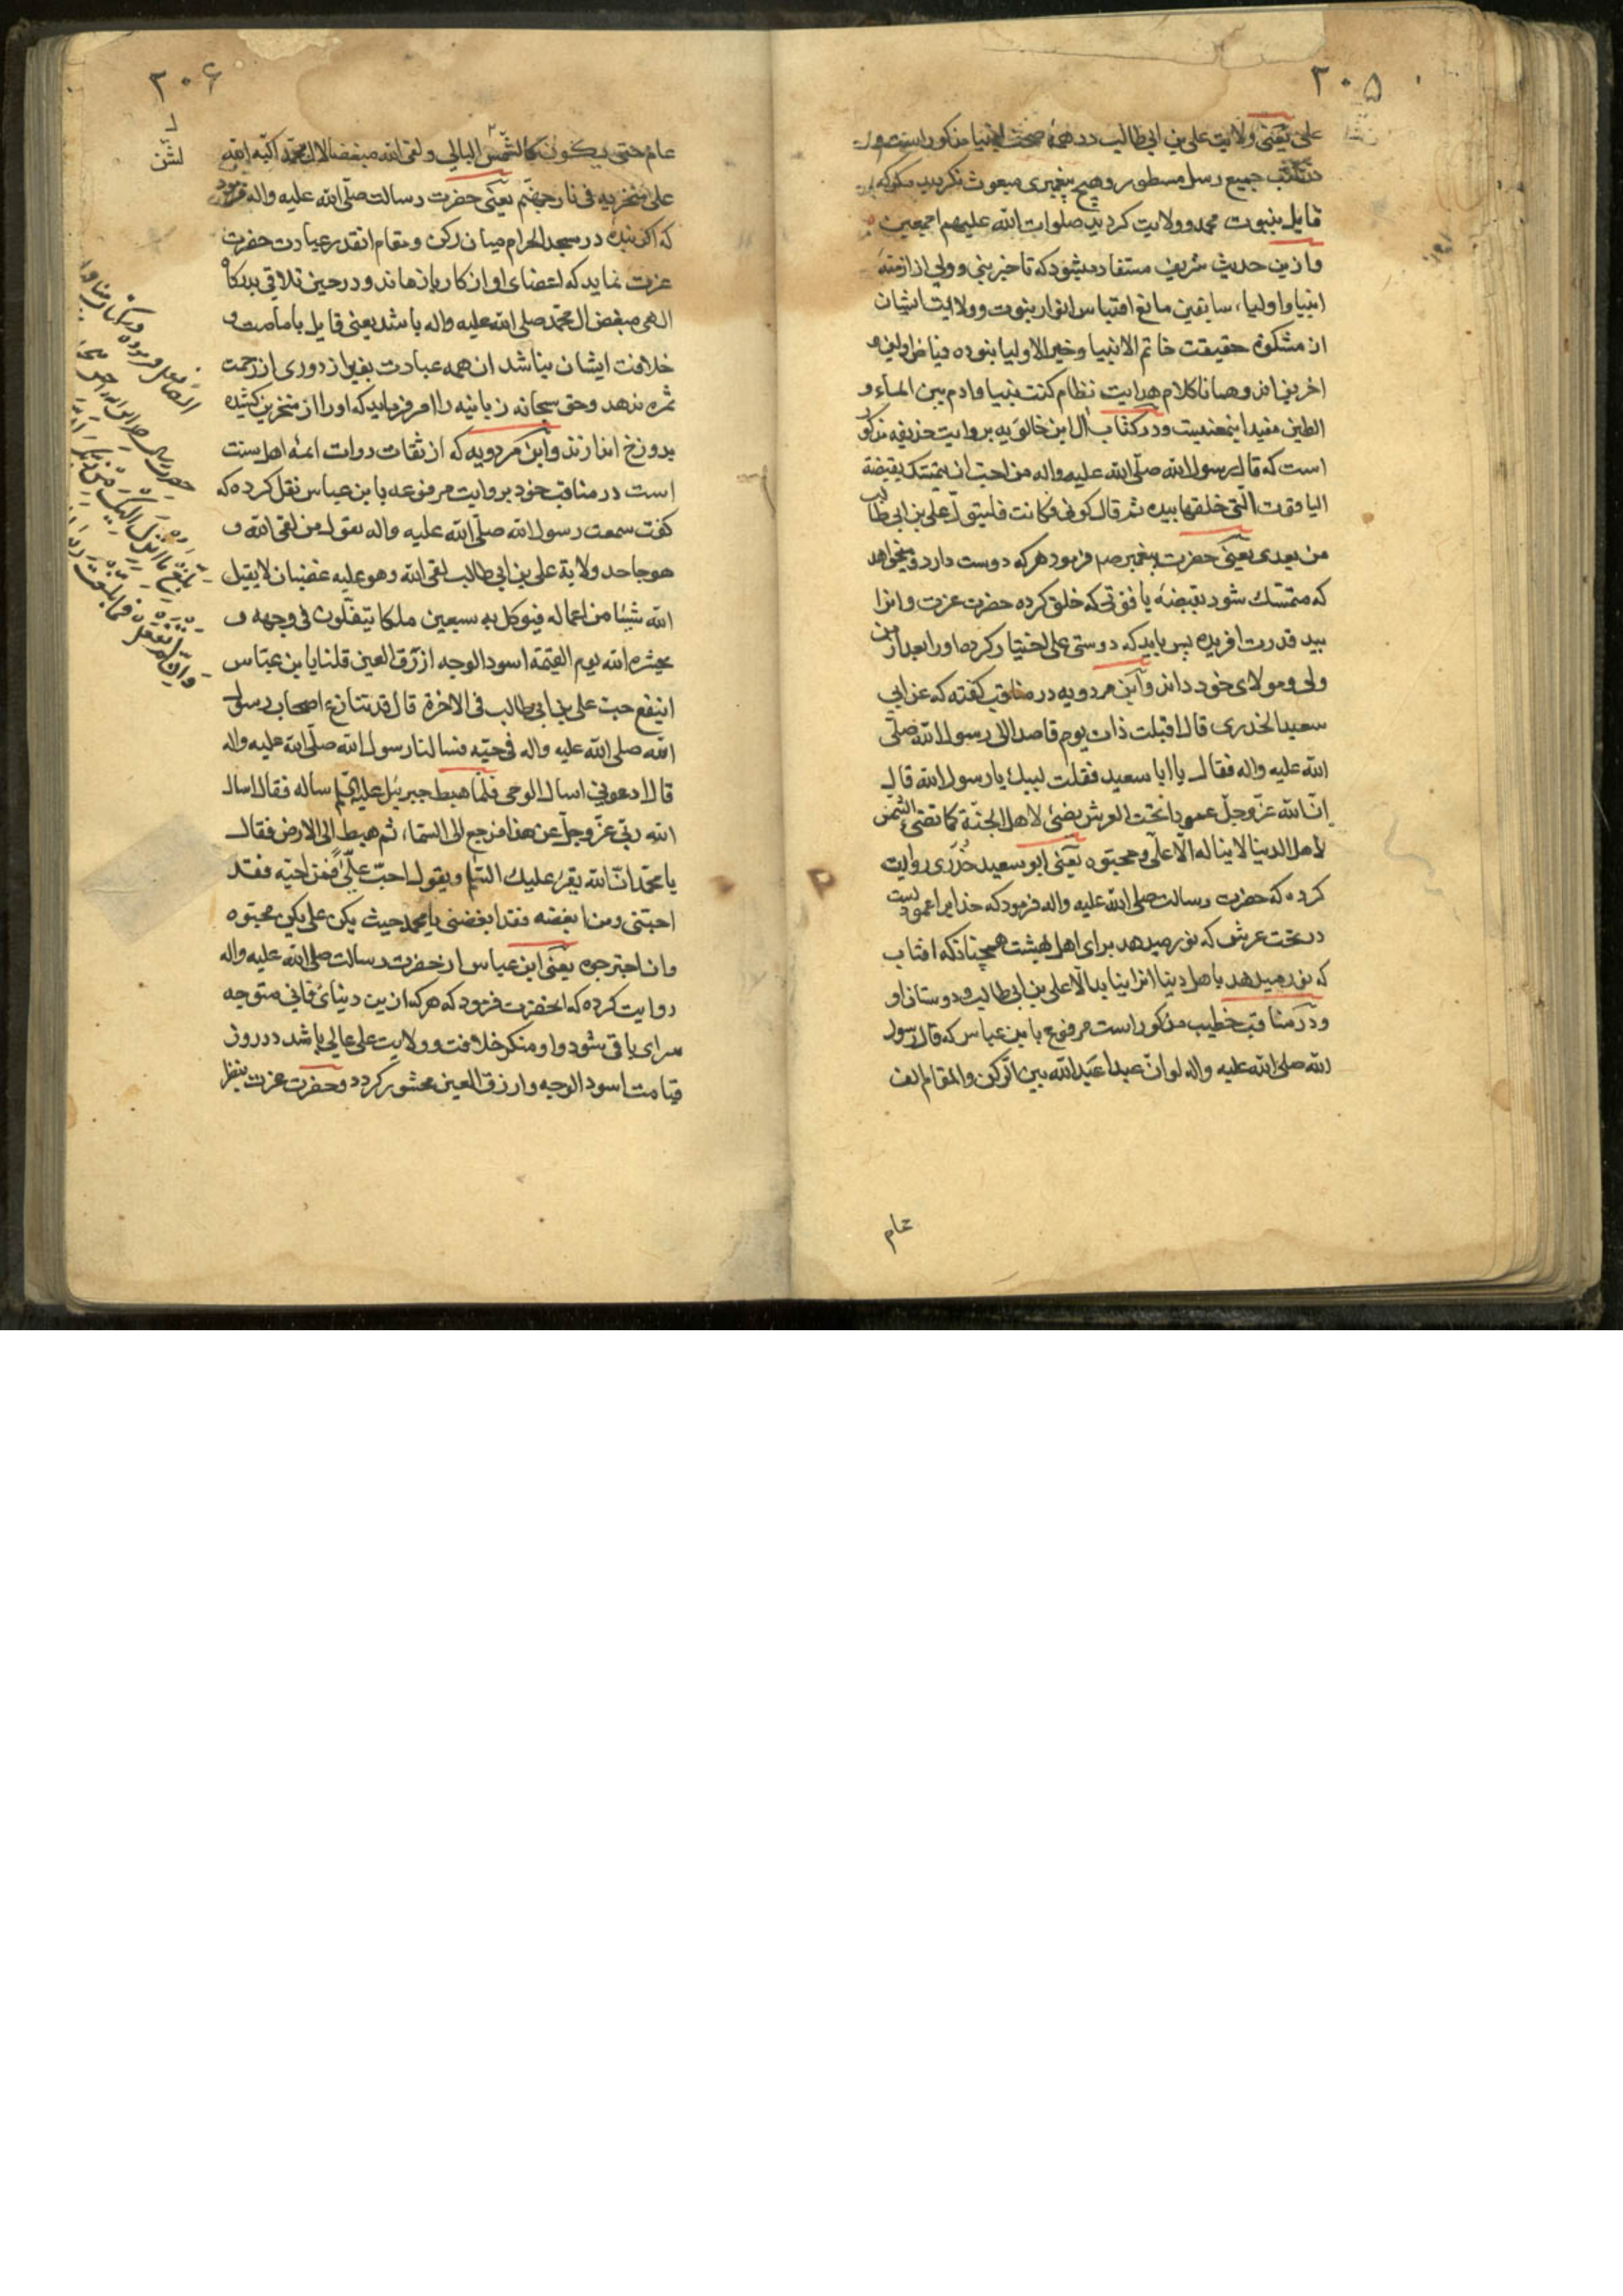 ۳۰۵
علی یعنی ولایت علی بن ابی طالب در همهٔ صحف انبیا مذکور است و
در کتب جمیع رسل مسطور و هیچ پیغمبری مبعوث نکردید مکر که
قایل بنبوت محمد و ولایت کردید صلوات الله علیهم اجمعین
و ازین حدیث شریف مستفاد میشود که تاخیر نبی و ولی از ازمنهٔ
انبیا و اولیاء سابقین مانع اقتباس انوار نبوت و ولایت ایشان
از مشکوة حقیقت خاتم الانبیا و خیر الاولیا نبوده فیاض اولین و
اخرین اند و همانا کلام هدایت نظام کنت نبیا و ادم بین الماء و
الطین مفید اینمعنیست و در کتاب ال ابن خالویه بروایت حذیفه مذکور
است که قال رسول الله صلی الله علیه واله من احب ان یتمسک بقبضة
الیاقوت التی خلقها بیده ثم قال کونی فکانت فلیتول علی بن ابی طالب
من بعدی یعنی حضرت پیغمبر صم فرمود هر که دوست دارد و میخواهد
که متمسک شود بقبضهٔ یاقوتی که خلق کرده حضرت عزت و انرا
بید قدرت افریده پس باید که دوستی علی اختیار کرده اورا بعد از من
ولی و مولای خود داند و ابن مردویه در مناقب کفته که عن ابی
سعید الخدری قال اقبلت ذات یوم قاصدا الی رسول الله صلی
الله علیه واله فقال یا ابا سعید فقلت لبیک یا رسول الله قال
ان لله عز و جل عمودا تحت العرش یضئ لاهل الجنة کما تضئ الشمس
لاهل الدنیا لا یناله الا علی و محبوه یعنی ابو سعید خدری روایت
کرده که حضرت رسالت صلی الله علیه واله فرمود که خدایرا عمودیست
در تحت عرش که نور میدهد برای اهل بهشت همچنانکه افتاب
که نور میدهد باهل دنیا انرا نیابد الا علی بن ابی طالب و دوستان او
و در مناقب خطیب مذکور است مرفوع بابن عباس که قال رسول
الله صلی الله علیه واله لو ان عبدا عبد الله بین الرکن و المقام الف
عام
۳۰۶
عام حتی یکون کالشن البالی و لقی الله مبغضا لال محمد اکبه الله
علی منخریه فی نار جهنم یعنی حضرت رسالت صلی الله علیه واله فرمود
که اکر بنده در مسجد الحرام میان رکن و مقام انقدر عبادت حضرت
عزت نماید که اعضای او از کار باز ماند و در حین تلاقی بدرکاه
الهی مبغض ال محمد صلی الله علیه واله باشد یعنی قایل بامامت و
خلافت ایشان نباشد ان همه عبادت بغیر از دوری از رحمت
ثمره ندهد و حق سبحانه زبانیه را امر فرماید که اورا از منخرین کشیده
بدوزخ اندازند و ابن مردویه که از ثقات روات ائمهٔ اهل سنت
است در مناقب خود بروایت مرفوعه بابن عباس نقل کرده که
کفت سمعت رسول الله صلی الله علیه واله یقول من لقی الله و
هو جاحد ولایة علی بن ابی طالب لقی الله و هو علیه غضبان لا یقبل
الله شیئا من اعماله فیوکل به سبعین ملکا یتفلون فی وجهه و
یحشره الله یوم القیمة اسود الوجه ازرق العین قلنا یا بن عباس
اینفع حب علی بن ابی طالب فی الاخرة قال قد تنازع اصحاب رسول
الله صلی الله علیه واله فی حبه فسالنا رسول الله صلی الله علیه واله
قال دعونی اسال الوحی فلما هبط جبرئیل علیه السلام ساله فقال اسال
الله ربی عز و جل عن هذا فرجع الی السماء ثم هبط الی الارض فقال
یا محمد ان الله یقرء علیک السلام و یقول احب علیا فمن احبه فقد
احبنی و من ابغضه فقد ابغضنی یا محمد حیث یکن علی یکن محبوه
و ان اجترحوا یعنی ابن عباس از حضرت رسالت صلی الله علیه واله
روایت کرده که انحضرت فرمود که هر که ازین دنیای فانی متوجه
سرای باقی شود و او منکر خلافت و ولایت علی عالی باشد در روز
قیامت اسود الوجه و ازرق العین محشور کردد و حضرت عزت بنظر
لشن
بلغ ما انزل الیک من ربک
و ان لم تفعل فما بلغت رسالته